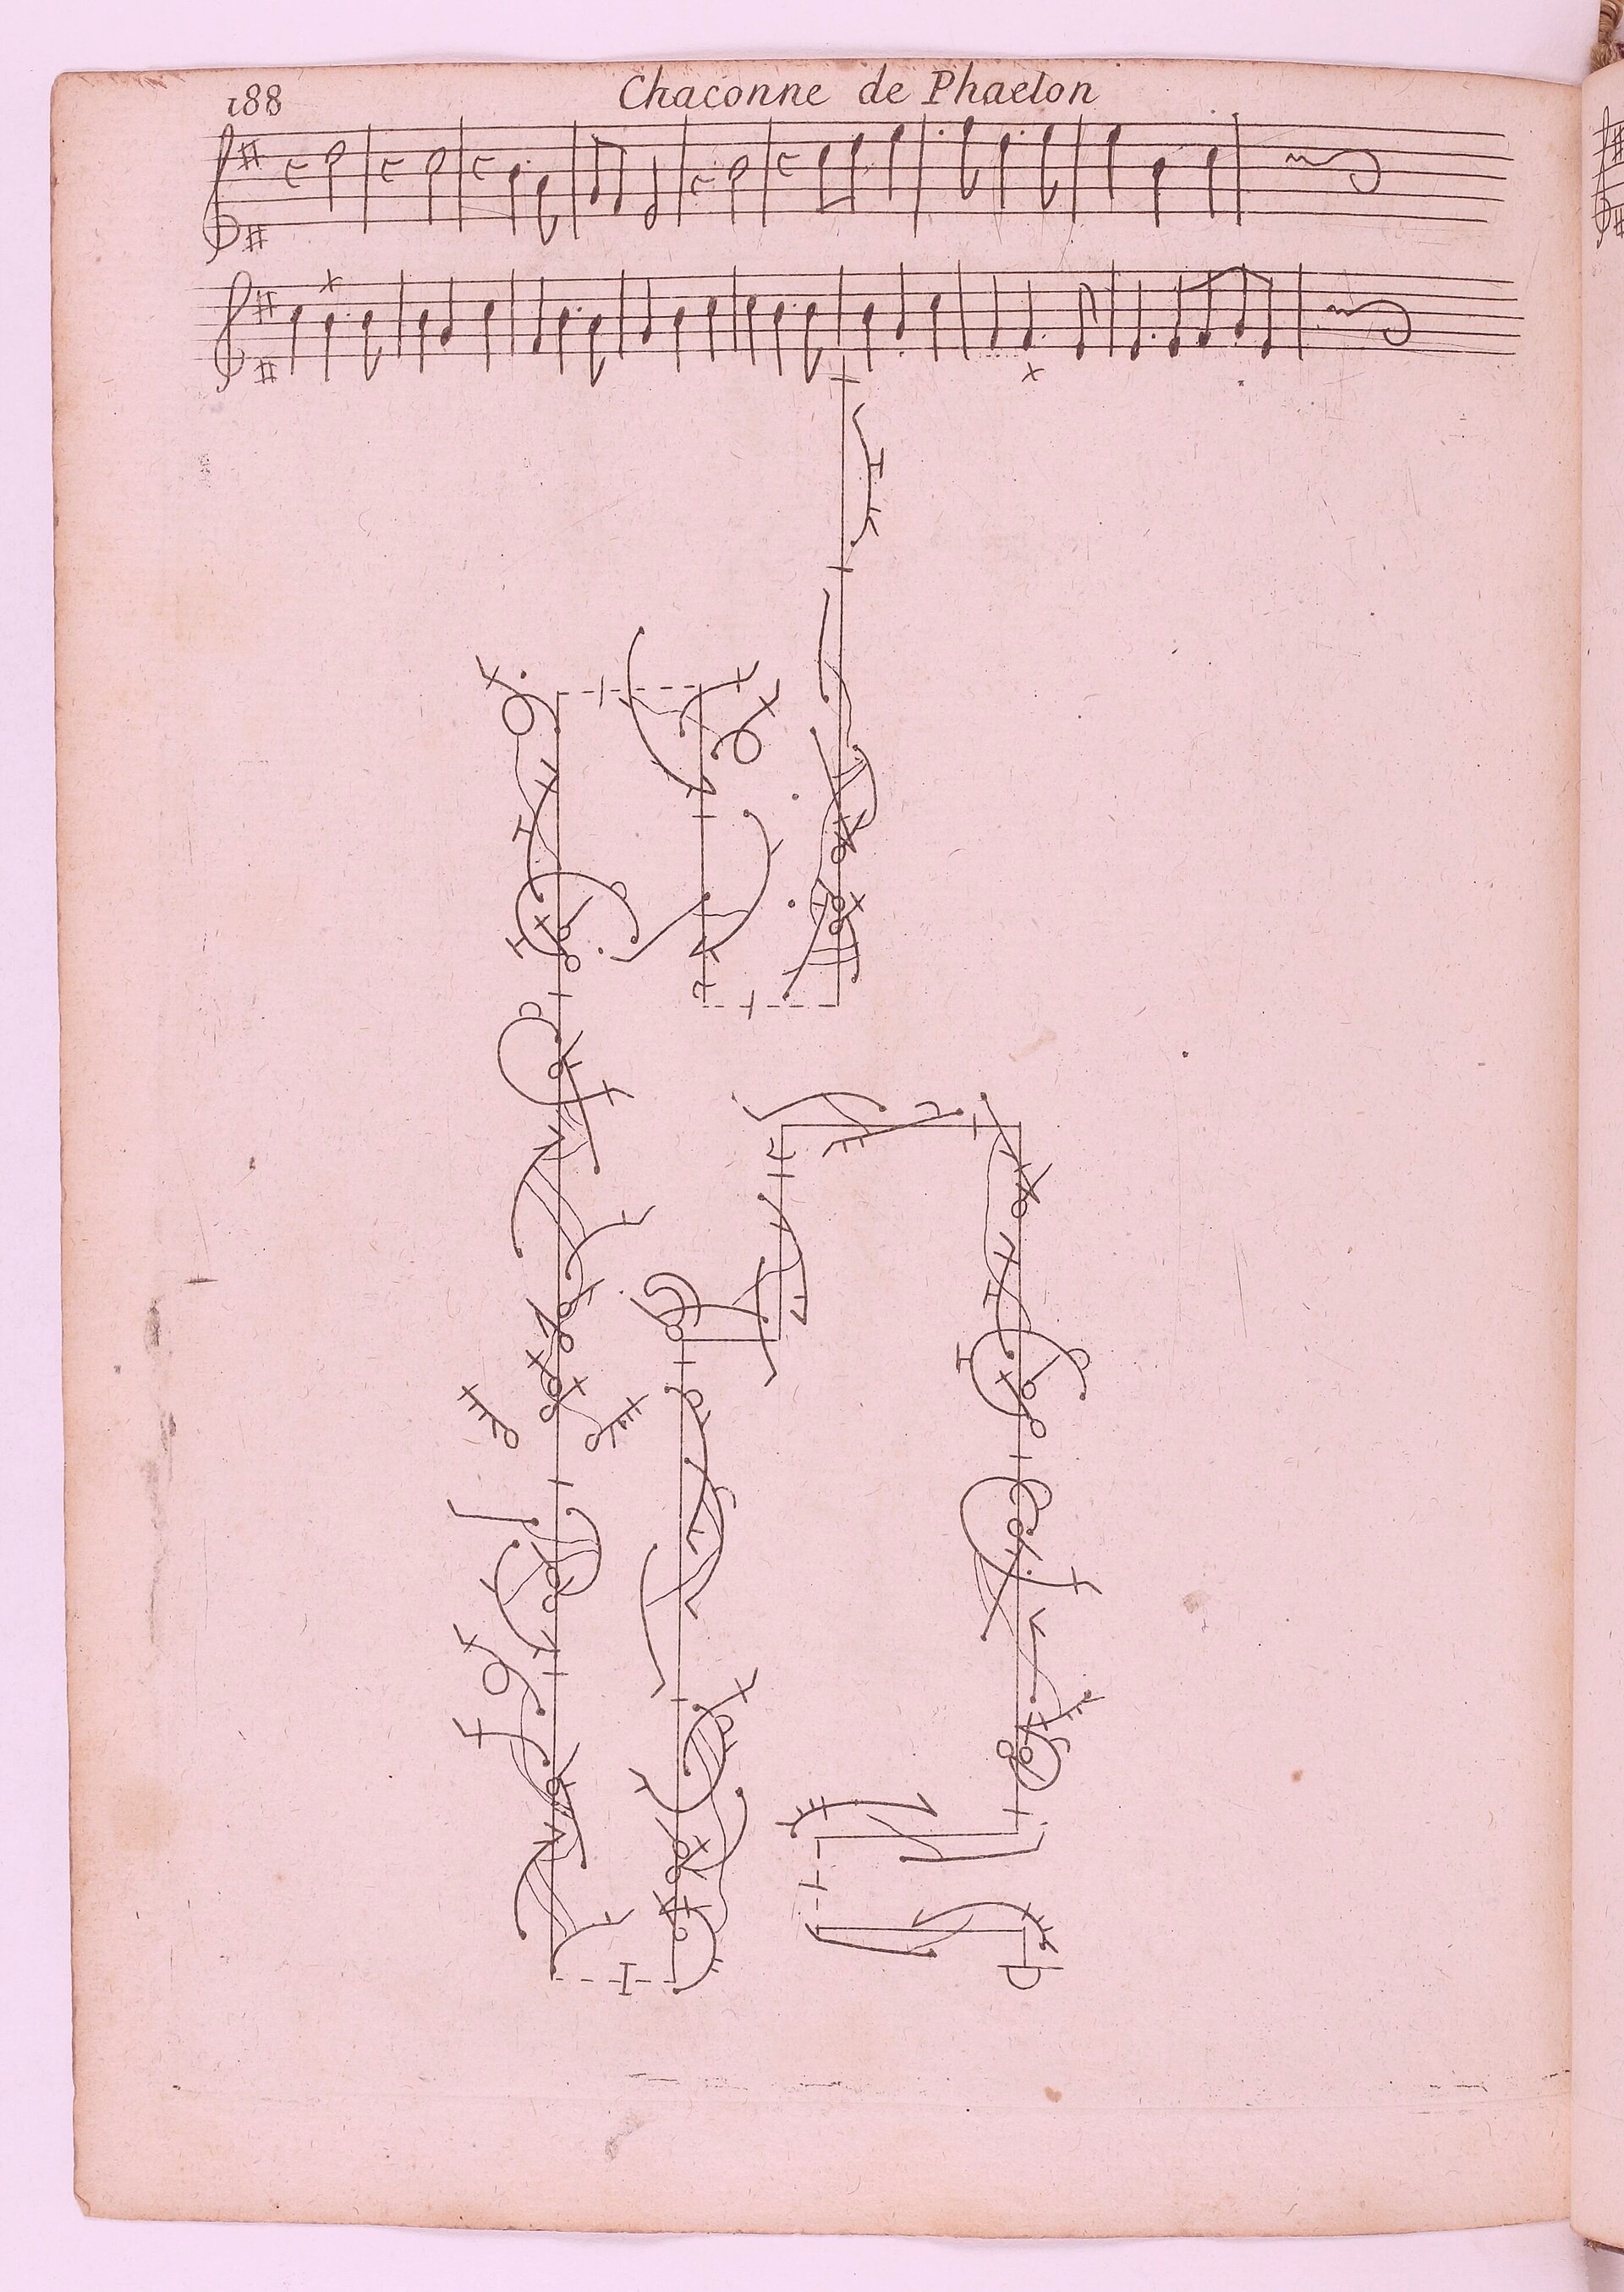 188
Chaconne de Phaeton